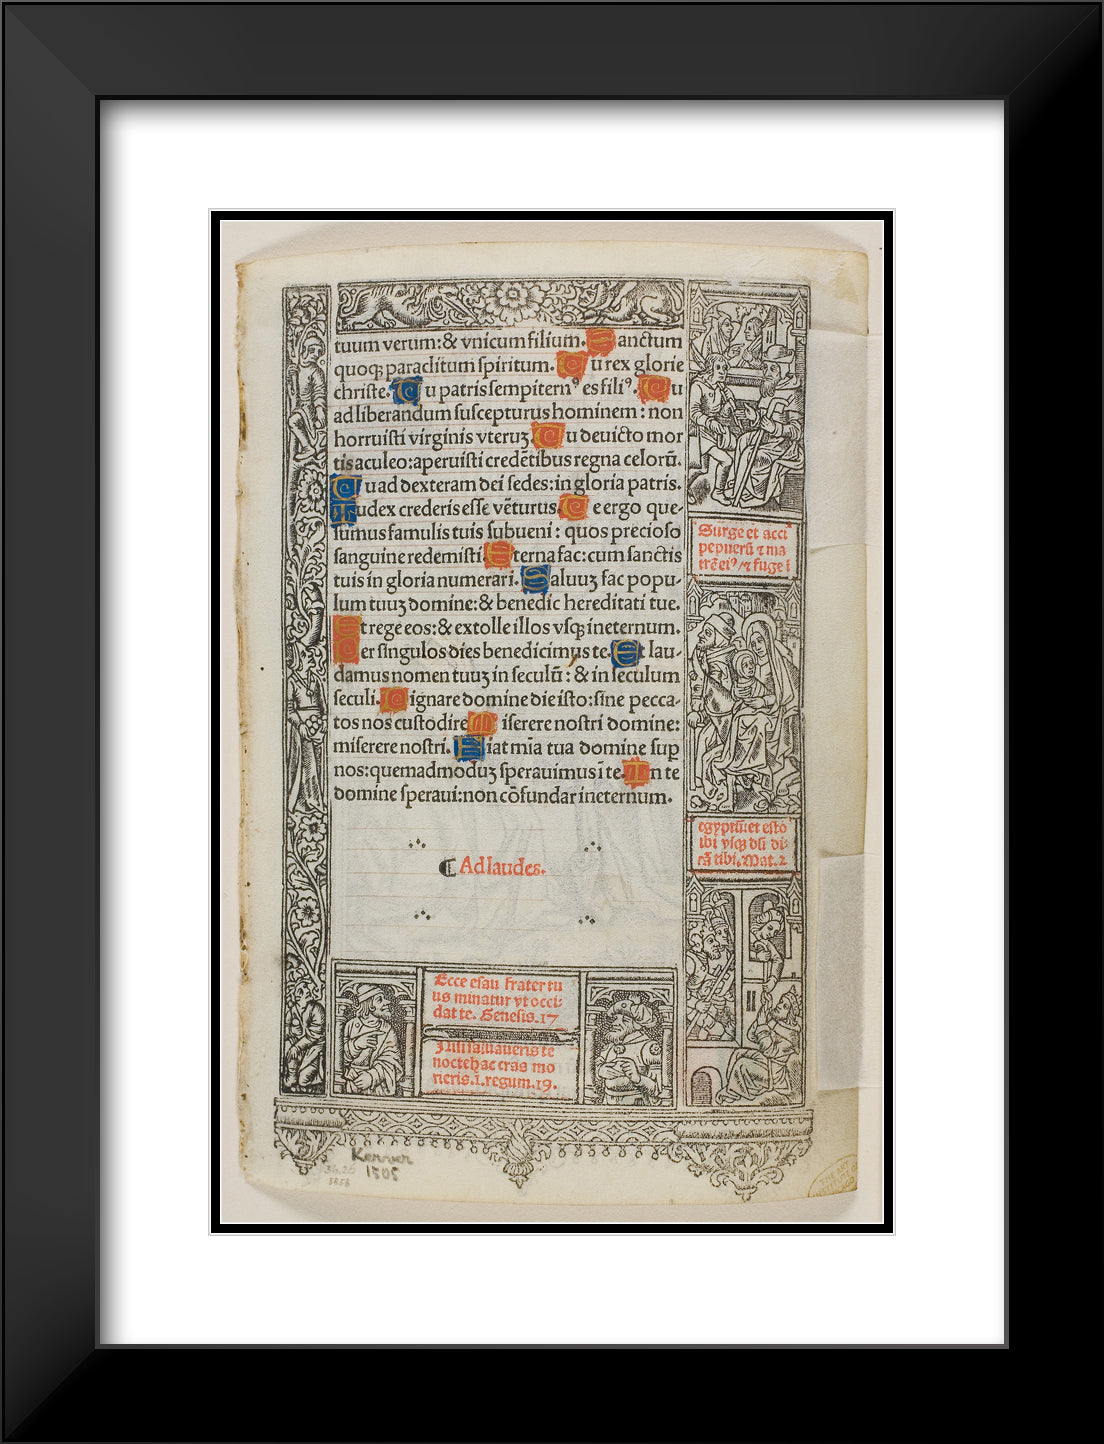 tuum verum:& vnicum filium. Sanctum
quoqꝫ paraclitum ſpiritum. Tu rex glorie
chriſte. Tu patris ſempiternꝰ es filiꝰ. Tu
ad liberandum ſuſcepturus hominem: non
horruiſti virginis vteruꝫ Tu deuicto mor
tis aculeo: aperuiſti credẽtibus regna celorũ.
Tu ad dexteram dei ſedes: in gloria patris.
Iudex crederis eſſe vẽturus. Te ergo que-
ſumus famulis tuis ſubueni: quos precioſo
ſanguine redemiſti. Eterna fac: cum ſanctis
tuis in gloria numerari. Saluuꝫ fac popu-
lum tuuꝫ domine: & benedic hereditati tue.
Et rege eos: & extolle illos vſqꝫ ineternum.
Per ſingulos dies benedicimus te. Et lau-
damus nomen tuuꝫ in ſeculũ: & in ſeculum
ſeculi. Dignare domine die iſto: ſine pecca-
to nos cuſtodire Miſerere noſtri domine:
miſerere noſtri. Fiat mĩa tua domine ſup
nos: quemadmoduꝫ ſperauimus ĩ te. In te
domine ſperaui: non cõfundar ineternum.
⁋ Ad laudes.
Surge et acci
pe pueru᷑ ⁊ ma
trẽ eiꝰ/⁊ fuge ĩ
egyptũ: et eſto
ibi vſqꝫ dũ di-
cã tibi. Mat. 2
Ecce eſau frater tu
us minatur vt occi:
dat te. Geneſis. 17
Niſi ſaluaueris te
nocte hac cras mo
rieris. I. regum. 19.
Kerver
1505
34.26